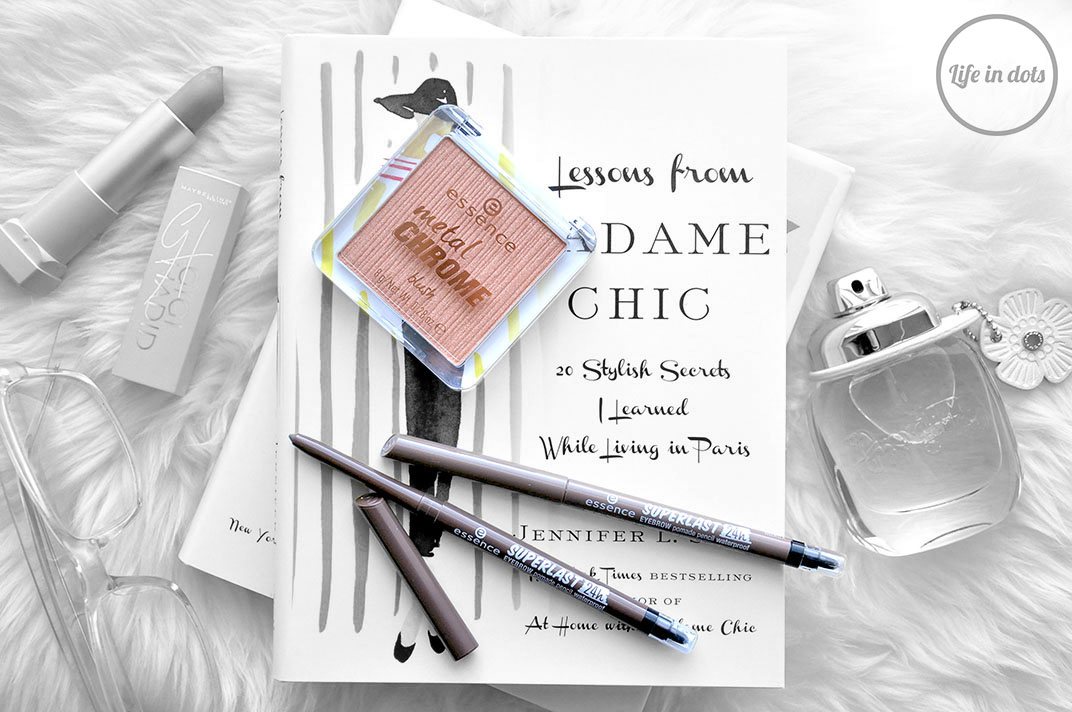 Life in dots
Lessons from
DAME
CHIC
20 Stylish Secrets
I Learned
While Living in Paris
JENNIFER L.
Times BESTSELLING
OF
At Home Chic
essence
metal
CHROME
blush
essence SUPERLAST 24h
EYEBROW pomade pencil waterproof
essence SUPERLAST 24h
EYEBROW pomade pencil waterproof
MAYBELLINE
GIGI
HADID
New